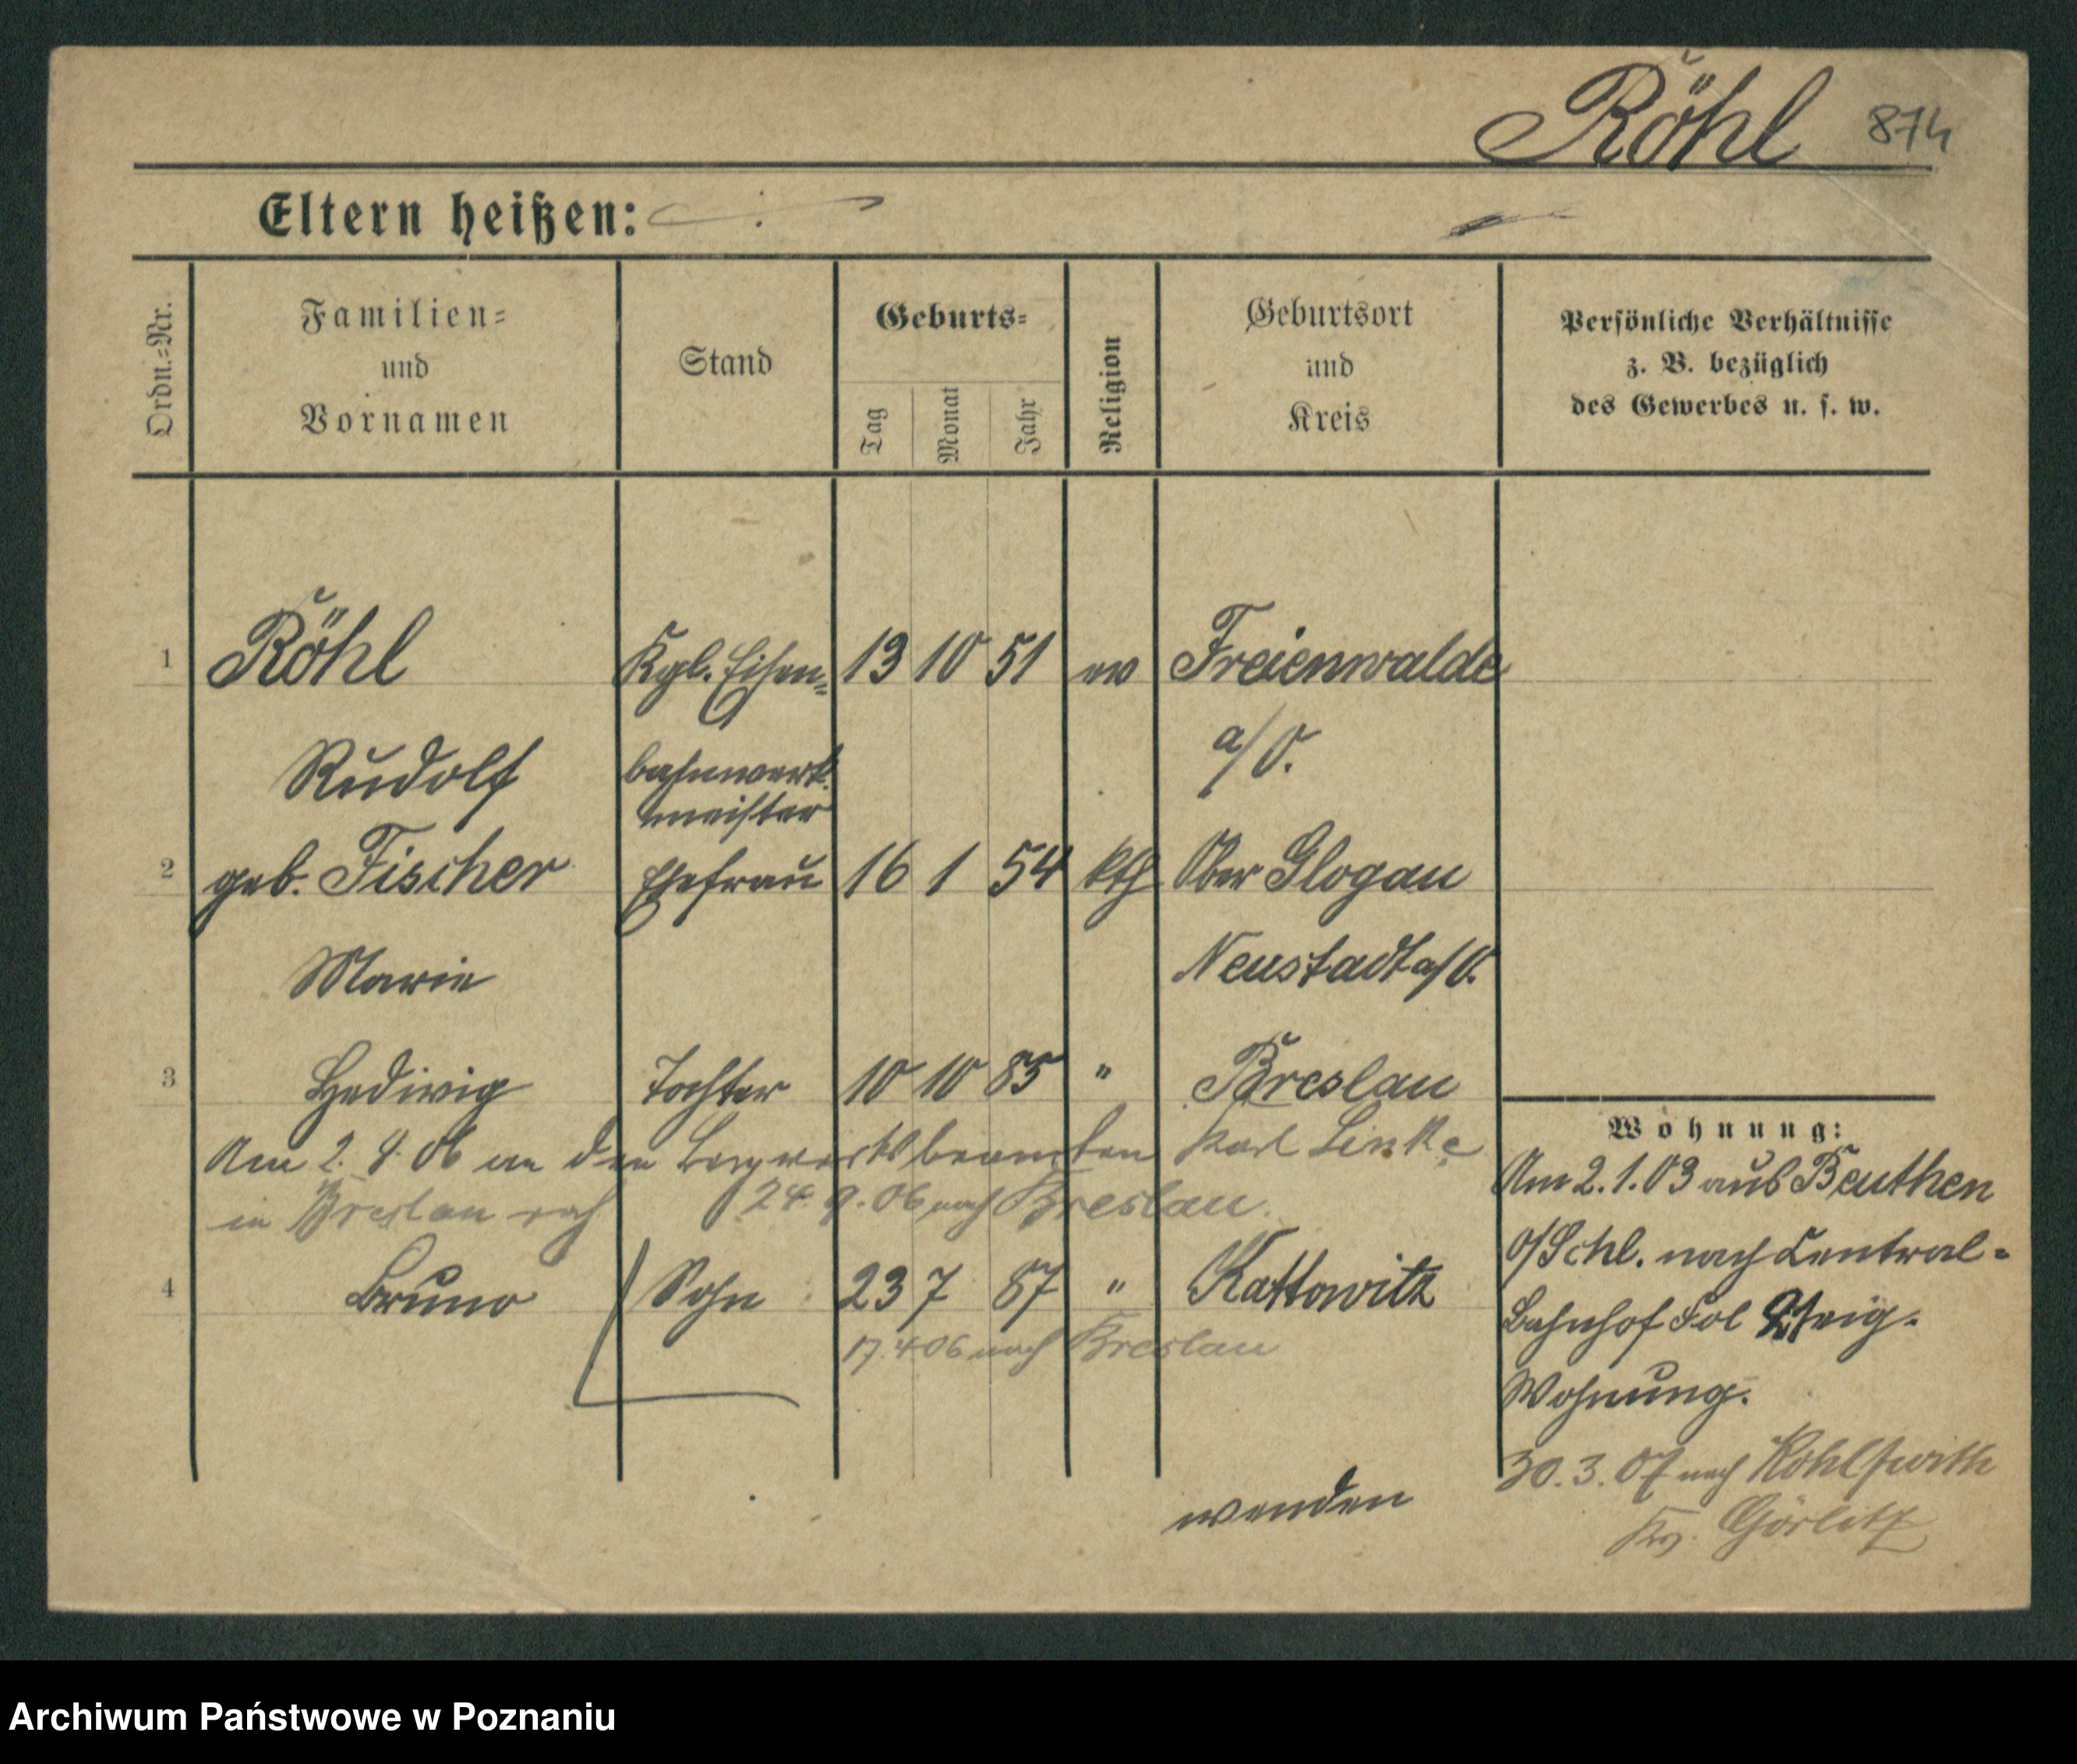 Röhl 874
Eltern heißen:
Ordn.=Nr.
Familien=
und
Vornamen
Stand
Geburts=
Tag
Monat
Jahr
Religion
Geburtsort
und
Kreis
Persönliche Verhältnisse
z. B. bezüglich
des Gewerbes u. s. w.
1 Röhl Kgl. Eisen= 13 10 51 ev Freienwalde
Rudolf bahnwerk= a/O.
meister
2 geb. Fischer Ehefrau 16 1 54 kth Ober Glogau
Marie Neustadt a/O.
3 Hedwig Tochter 10 10 85 " Breslau
Am 2. 9. 06 an den Bergwerksbeamten Karl Linke
in Breslau 24. 9. 06 nach Breslau.
4 Bruno Sohn 23 7 87 " Kattowitz
17.4 06 nach Breslau
Wohnung:
Am 2.1.03 aus Beuthen
O/Schl. nach Central=
Bahnhof
Wohnung.
30. 3. 07 nach
Kr. Görlitz
wenden
Archiwum Państwowe w Poznaniu